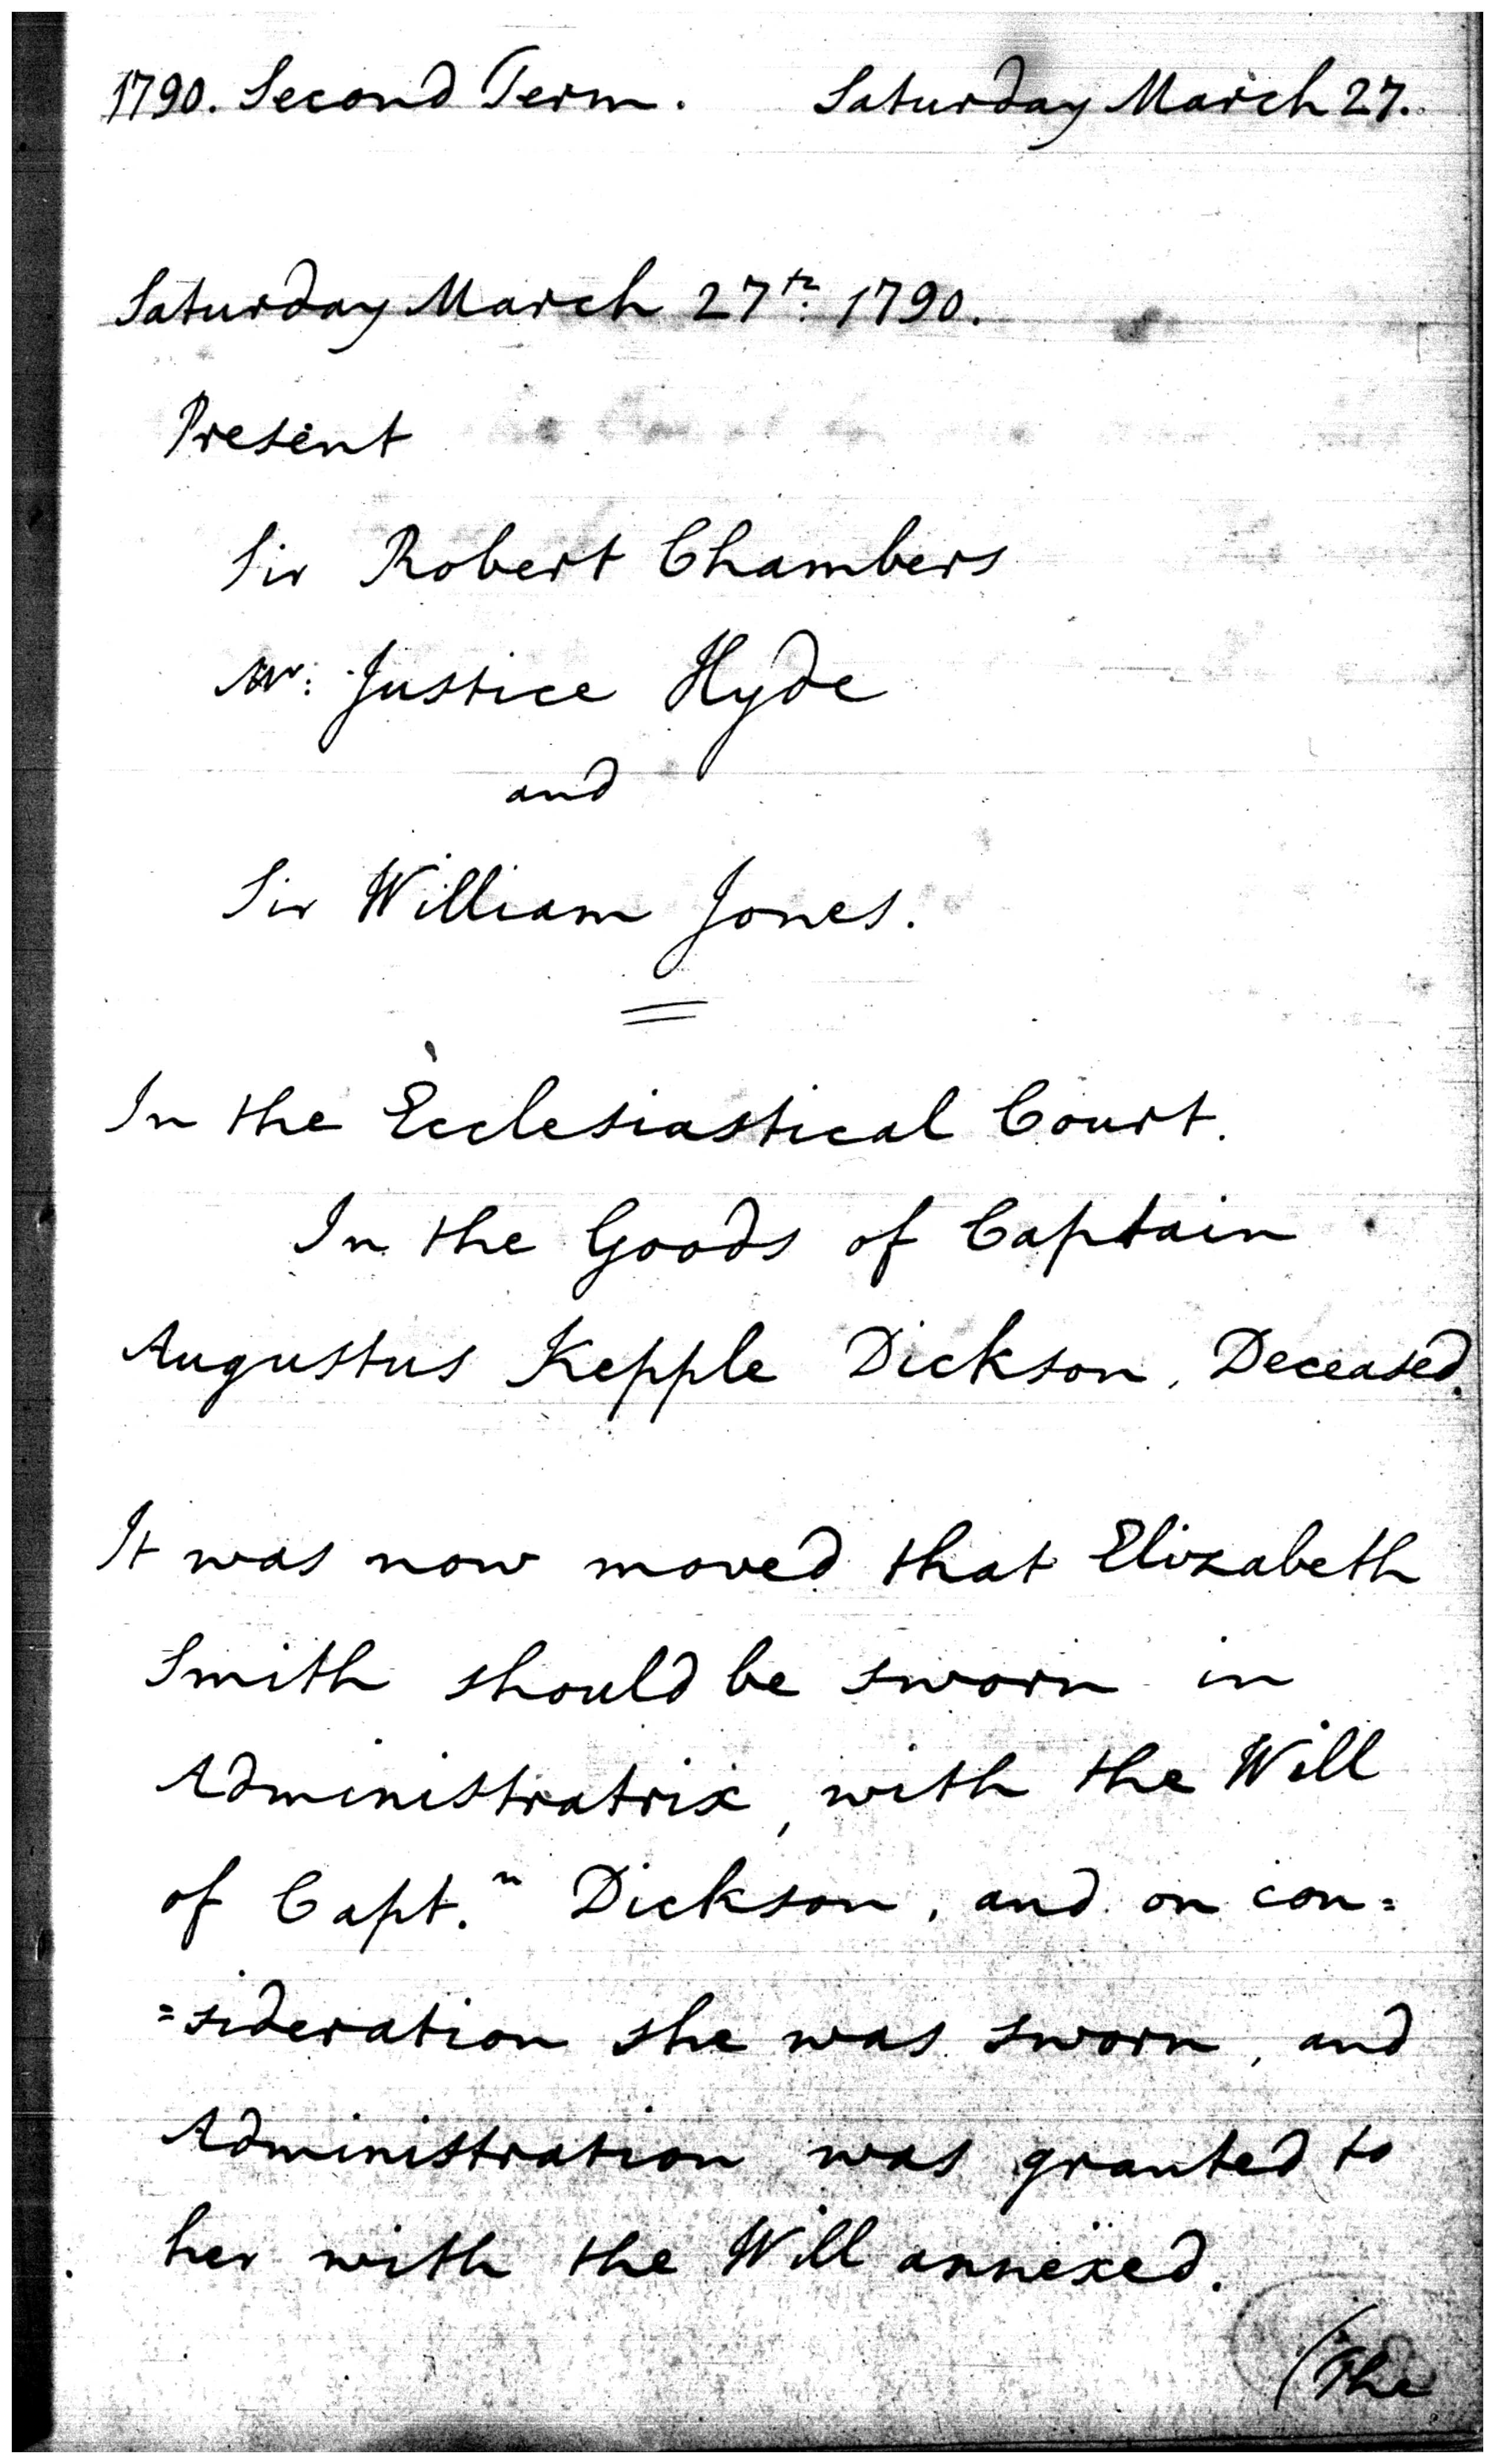 1790. Second Term. Saturday March 27.
Saturday March 27th. 1790.
Present
Sir Robert Chambers
Mr: Justice Hyde
and
Sir William Jones.
In the Ecclesiastical Court.
In the Goods of Captain
Augustus Kepple Dickson, Deceased.
It was now moved that Elizabeth
Smith should be sworn in
Administratrix, with the Will
of Capt.n Dickson, and on con=
=sideration she was sworn, and
Administration was granted to
her with the Will annexed.
(The